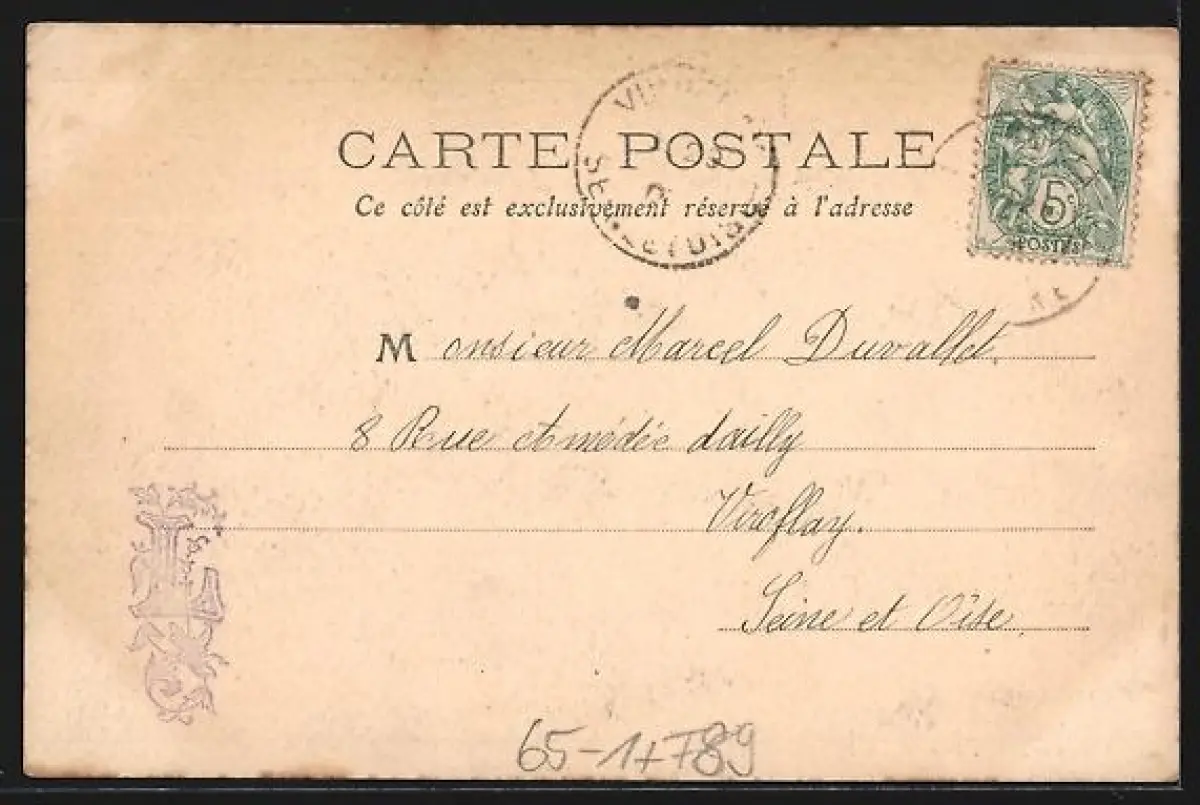 CARTE POSTALE
Ce côté est exclusivement réservé à l'adresse
5c
POSTES
Monsieur Marcel Duvallet.
8 Rue Amédée dailly
Viroflay.
Seine et Oise.
65-17789